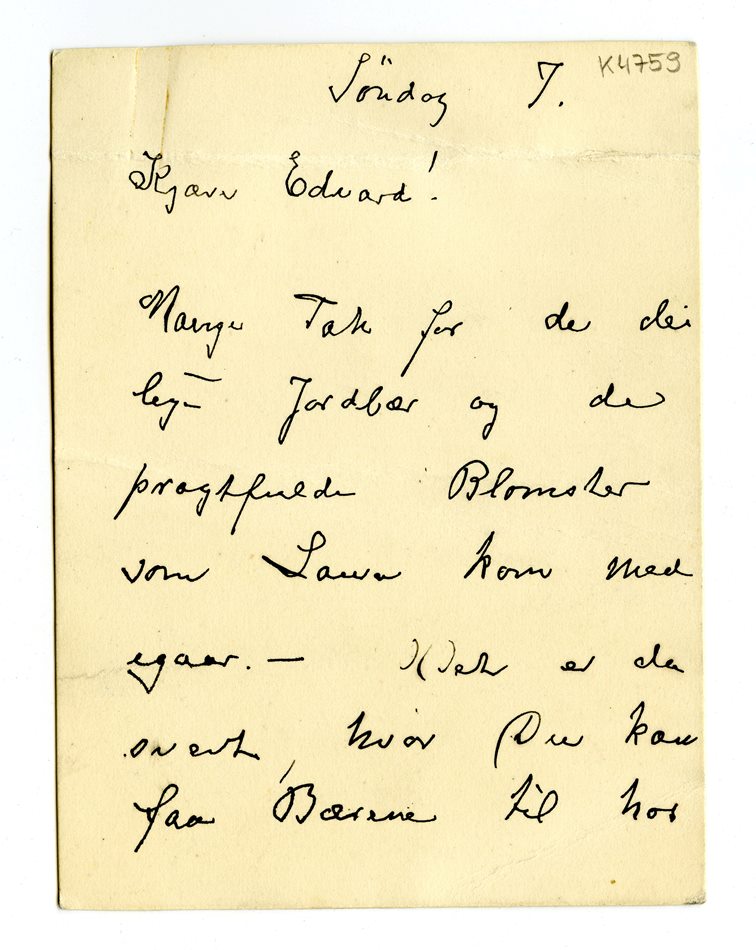 Söndag 7.
K4759
Kjære Edvard!
Mange Tak for de dei
lige Jordbær og de
pragtfulde Blomster
som Laura kom med
igaar. — Det er da
svert, hvor Du kan
faa Bærene til